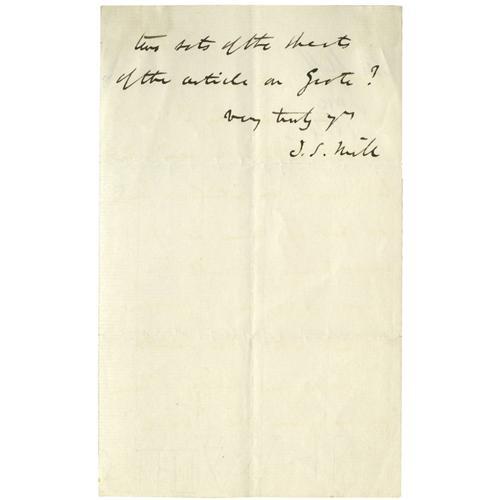 two sets of the sheets
of the article on Grote?
very truly yrs
J. S. Mill